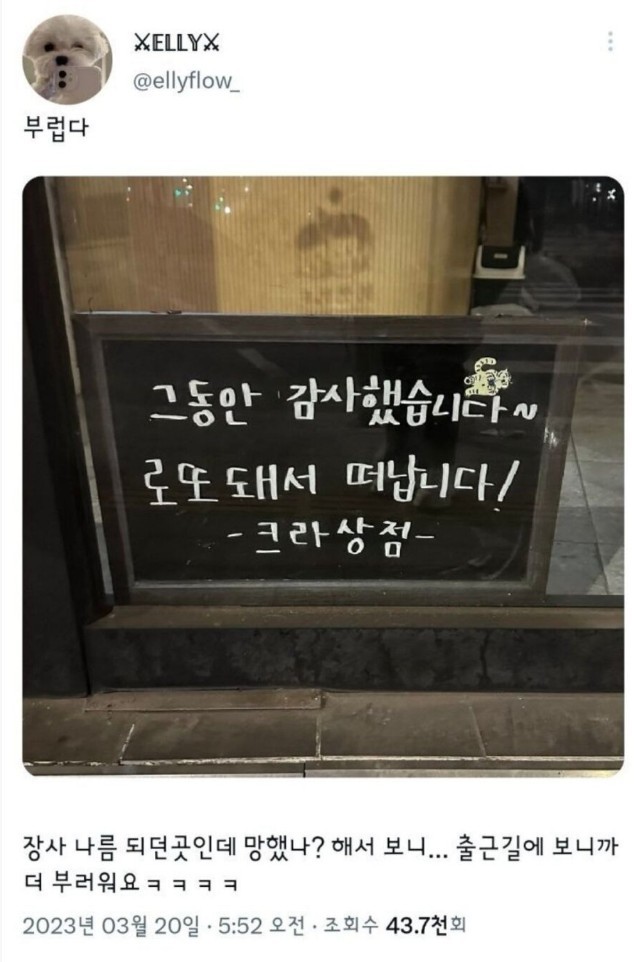 XELLYX
@ellyflow_
부럽다
그동안 감사했습니다~
로또 돼서 떠납니다!
-크라상점-
장사 나름 되던곳인데 망했나? 해서 보니... 출근길에 보니까
더 부러워요ㅋㅋㅋㅋ
2023년 03월 20일 · 5:52 오전 · 조회수 43.7천회